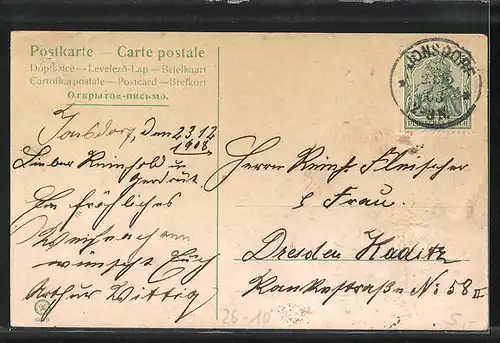 Postkarte — Carte postale
Dopisnice — Levelező-Lap — Briefkaart
Cartolina postale — Postcard — Brefkort
Открытое-письмо.
JONSDORF
Jonsdorf, den 23.12
1908
Lieber Reinhold u
Gertrut.
Ein fröhliches
Weihnachten
wünscht Euch
Arthur Wittig
Herrn Reinh. Fleischer
& Frau.
Dresden Kaditz
Rankestraße No 58 II
26-10
5,-